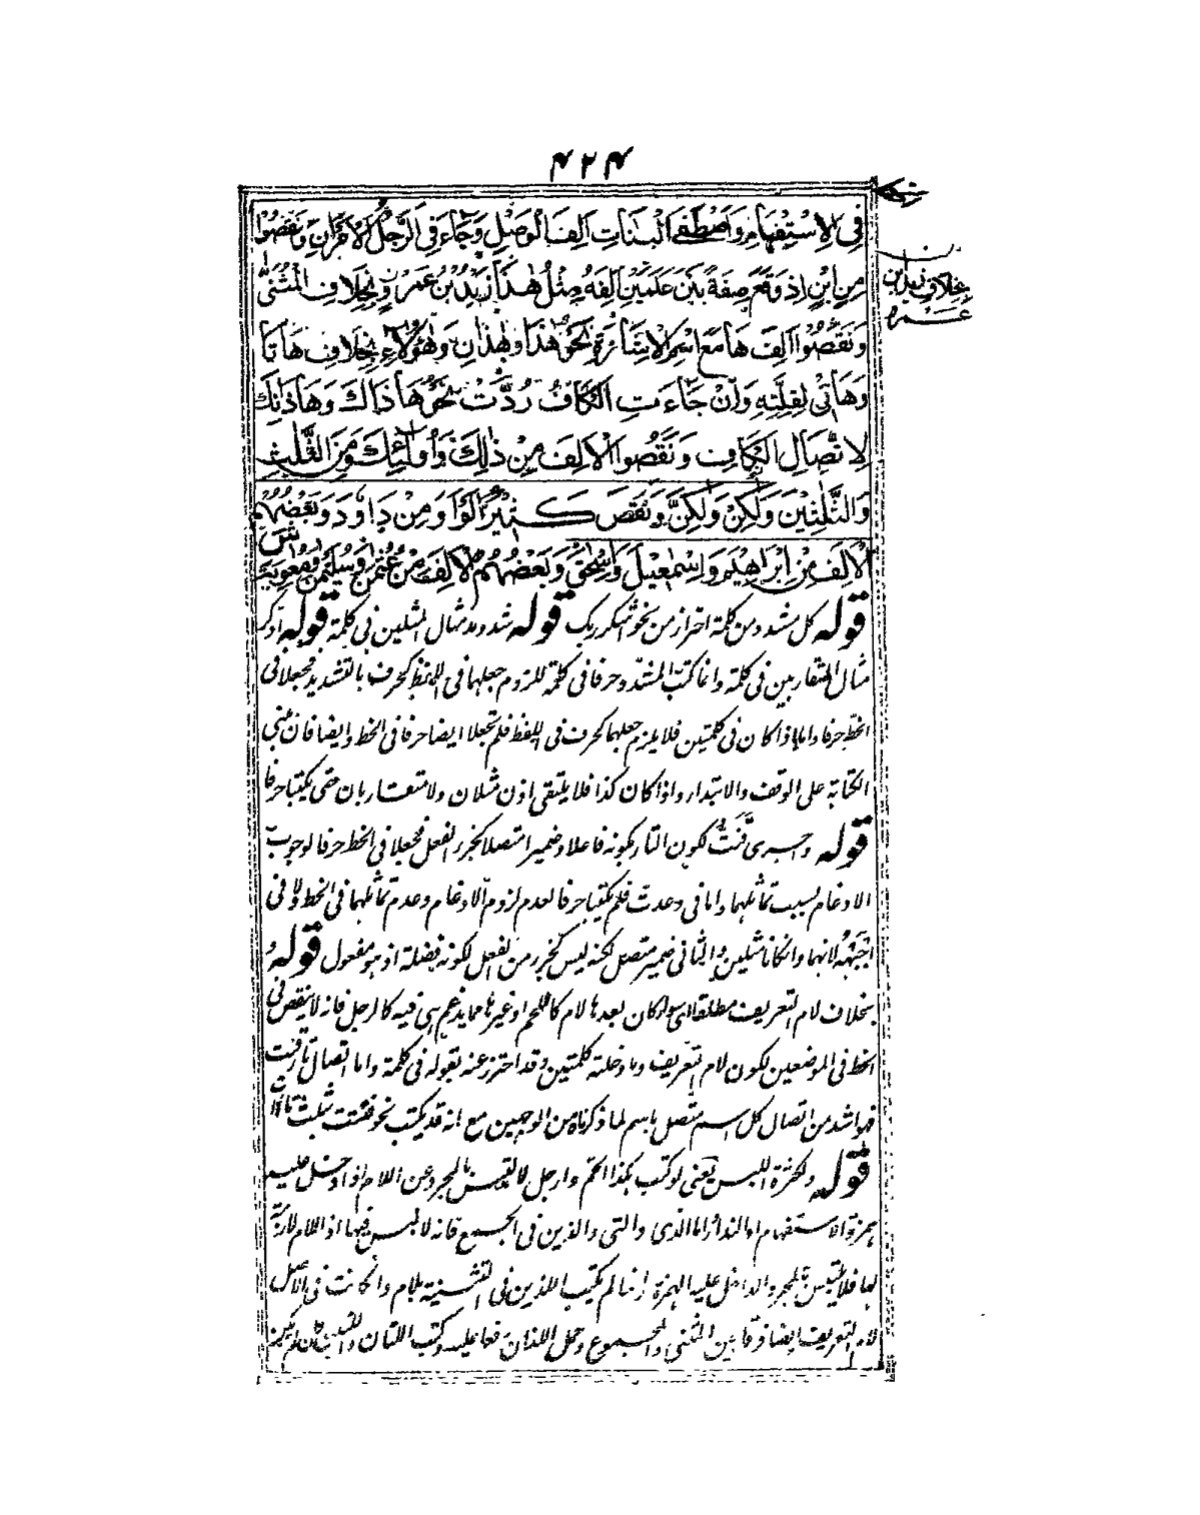 ۴۲۴
فِي الْاِسْتِفْهَامِ وَاَصْطَفَى الْبَنَاتِ اَلِفَ الْوَصْلِ وَجَاءَ فِي الرَّجُلِ الْاَمْرَانِ وَنَقَصُوْا
مِنِ ابْنٍ اِذَا وَقَعَ صِفَةً بَيْنَ عَلَمَيْنِ اَلِفَهُ مِثْلُ هٰذَا زَيْدُ بْنُ عَمْرٍو وَبِخِلَافِ الْمُثَنّٰى
بخلاف زيد ابن
عمرو
وَنَقَصُوْا اَلِفَ هَا مَعَ اسْمِ الْاِشَارَةِ نَحْوُ هٰذَا وَهٰذَانِ وَهٰؤُلَاءِ بِخِلَافِ هَاتَا
وَهَاتِي لِقِلَّتِهِ وَاِنْ جَاءَتِ الْكَافُ رُدَّتْ نَحْوُ هَا ذَاكَ وَهَا ذَانِكَ
لِاتِّصَالِ الْكَافِ وَنَقَصُوا الْاَلِفَ مِنْ ذٰلِكَ وَاُولٰئِكَ وَمِنَ الثَّلٰثِ
وَالثَّلٰثِيْنَ وَلٰكِنْ وَلٰكِنَّ وَنَقَصَ كَثِيْرٌ الْوَاوَ مِنْ دَاوٗدَ وَبَعْضُهُمُ
الْاَلِفَ مِنْ اِبْرَاهِيْمَ وَاِسْمٰعِيْلَ وَاِسْحٰقَ وَبَعْضُهُمُ الْاَلِفَ مِنْ عُثْمٰنَ وَسُلَيْمٰنَ وَمُعٰوِيَةَ
قوله كل مشدد من كلمة احتراز من نحو اشكر ربك قوله شد ومد مثال المثلين فى كلمة قوله ادكر
مثال المتقاربين فى كلمة وانما كتب المشدد حرفا فى كلمة للزوم جعلهما فى اللفظ كحرف بالتشديد فجعلا فى
الخط حرفا واما اذا كان فى كلمتين فلا يلزم جعلهما كحرف فى اللفظ فلم يجعلا ايضا حرفا فى الخط وايضا فان مبنى
الكتابة على الوقف والابتداء واذا كان كذا فلا يلتقى اذن مثلان ولا متقاربان حتى يكتبا حرفا
قوله واجرى قتت لكون التاء لكونه فاعلا وضميرا متصلا كجزء الفعل فجعلا فى الخط حرفا لوجوب
الادغام بسبب تماثلهما واما فى وعدت فلم يكتبا حرفا لعدم لزوم الادغام وعدم تماثلهما فى الخط ولا فى
اجبهه لانهما وان كانا مثلين والثانى ضمير متصل لكنه ليس كجزء من الفعل لكونه فضلة اذ هو مفعول قوله و
بخلاف لام التعريف مطلقا سواء كان بعدها لام كاللحم او غيرها مما يدغم هى فيه كالرجل فانه لا ينقص فى
الخط فى الموضعين لكون لام التعريف وما دخلته كلمتين وقد احترز عنه بقوله فى كلمة واما اتصال تاء قتت
فهو اشد من اتصال كل اسم متصل باسم لما ذكرناه من الوجهين مع انه قد يكتب نحو قتتت بثلث تاآت
قوله ولكثرة اللبس يعنى لو كتب هكذا الحم وارجل لالتبس بالمجرد عن اللام اذا دخل عليه
همزة الاستفهام او النداء اما الذى والتى والذين فى الجمع فانه لا لبس فيها اذ اللام لازمة
لها فلا يلتبس بالمجرد الداخل عليه الهمزة انما لم يكتب اللذين فى التثنية بلام وان كانت فى الاصل
لام التعريف ايضا فرقا بين المثنى والمجموع وحمل اللذان رفعا عليه وكتب اللتان واللتين